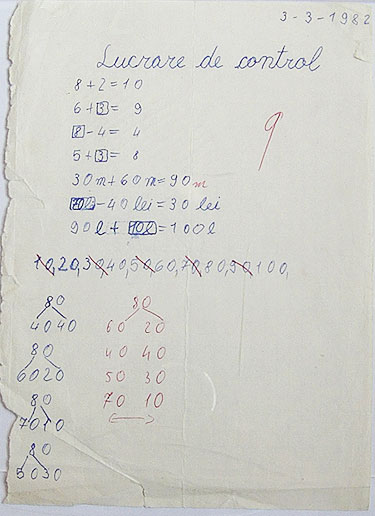 3-3-1982
Lucrare de control
8+2=10
6+3= 9
8-4= 4
5+3= 8
30m+60m=90m
70l-40lei=30 lei
90l+10l=100l
9
10,20,30,40,50,60,70,80,90,100,
80
40 40
80
60 20
80
70 10
80
50 30
80
60 20
40 40
50 30
70 10